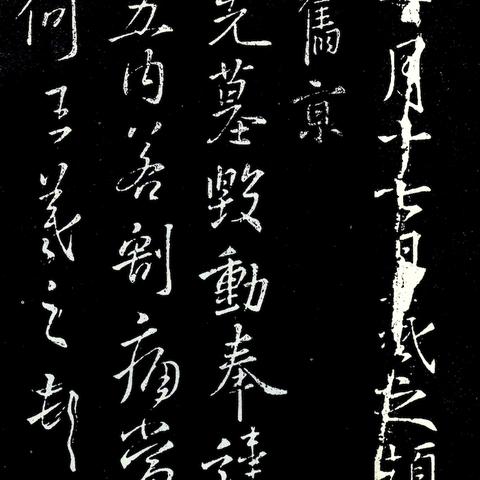 月十七日羲之頓
舊京
先墓毀動奉諱
五內若割痛當
何王羲之頓